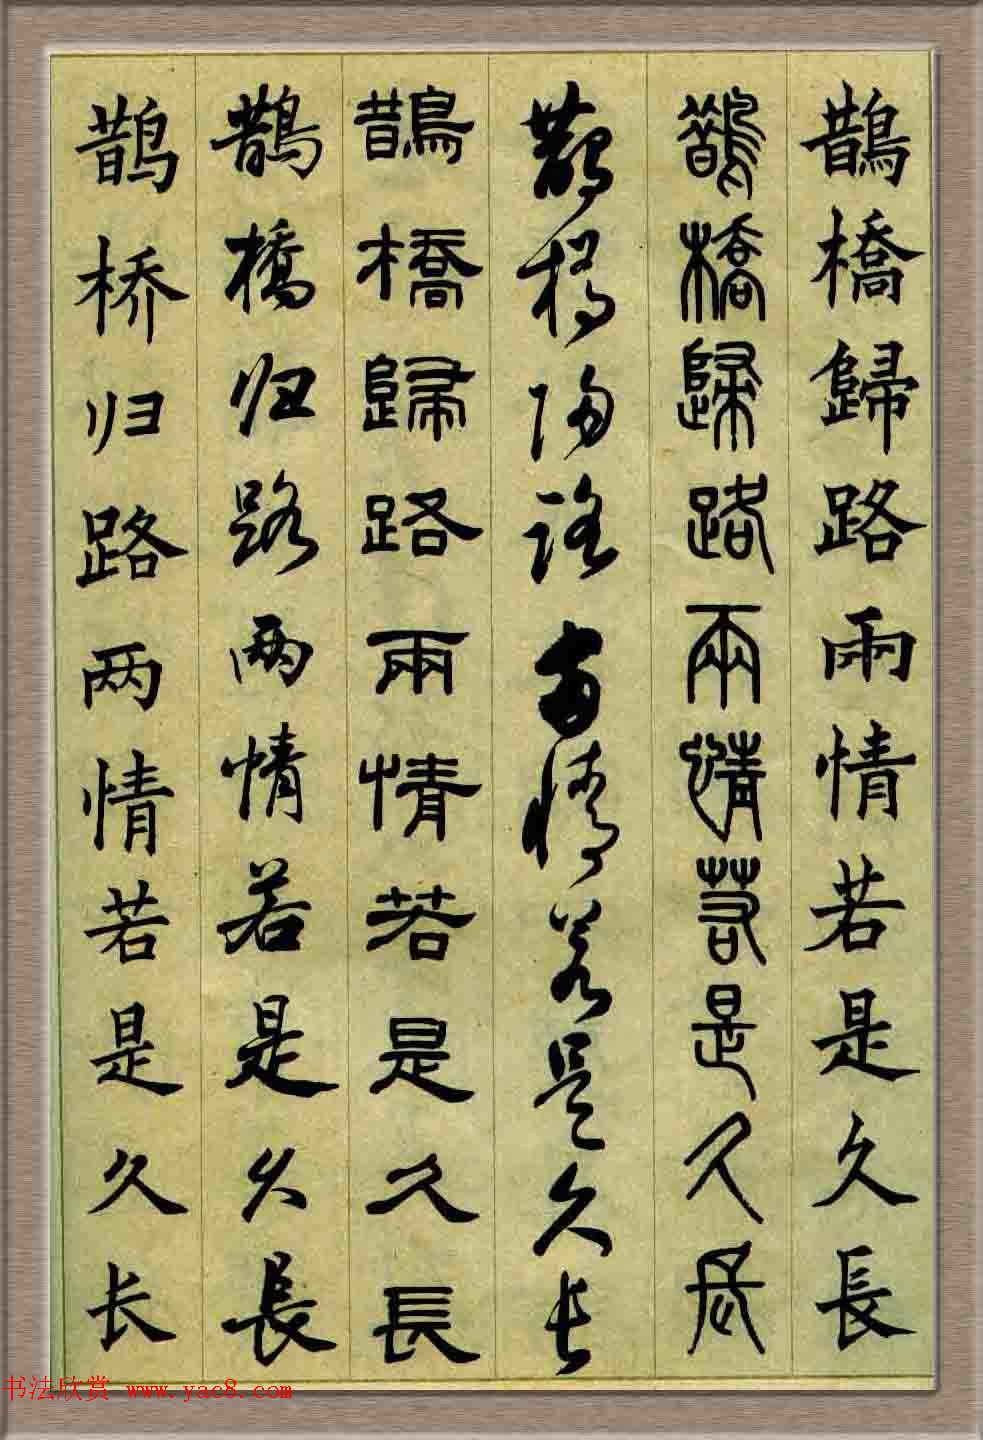 鵲橋歸路兩情若是久長
鵲橋歸路兩情若是久長
鵲橋歸路兩情若是久長
鵲橋歸路兩情若是久長
鵲橋归路两情若是久長
鹊桥归路两情若是久长
书法欣赏 www.yac8.com